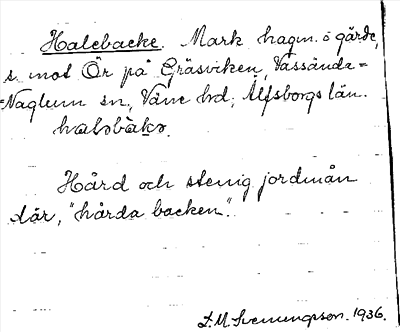 Halebacke. Mark hagm. o gärde,
s. mot Ör på Gräsviken, Vassända=
=Naglum sn, Väne hd, Älfsborgs län.
haləbàkə.
Hård och stenig jordmån
där, "hårda backen".
D. M. Svenungsson. 1936.